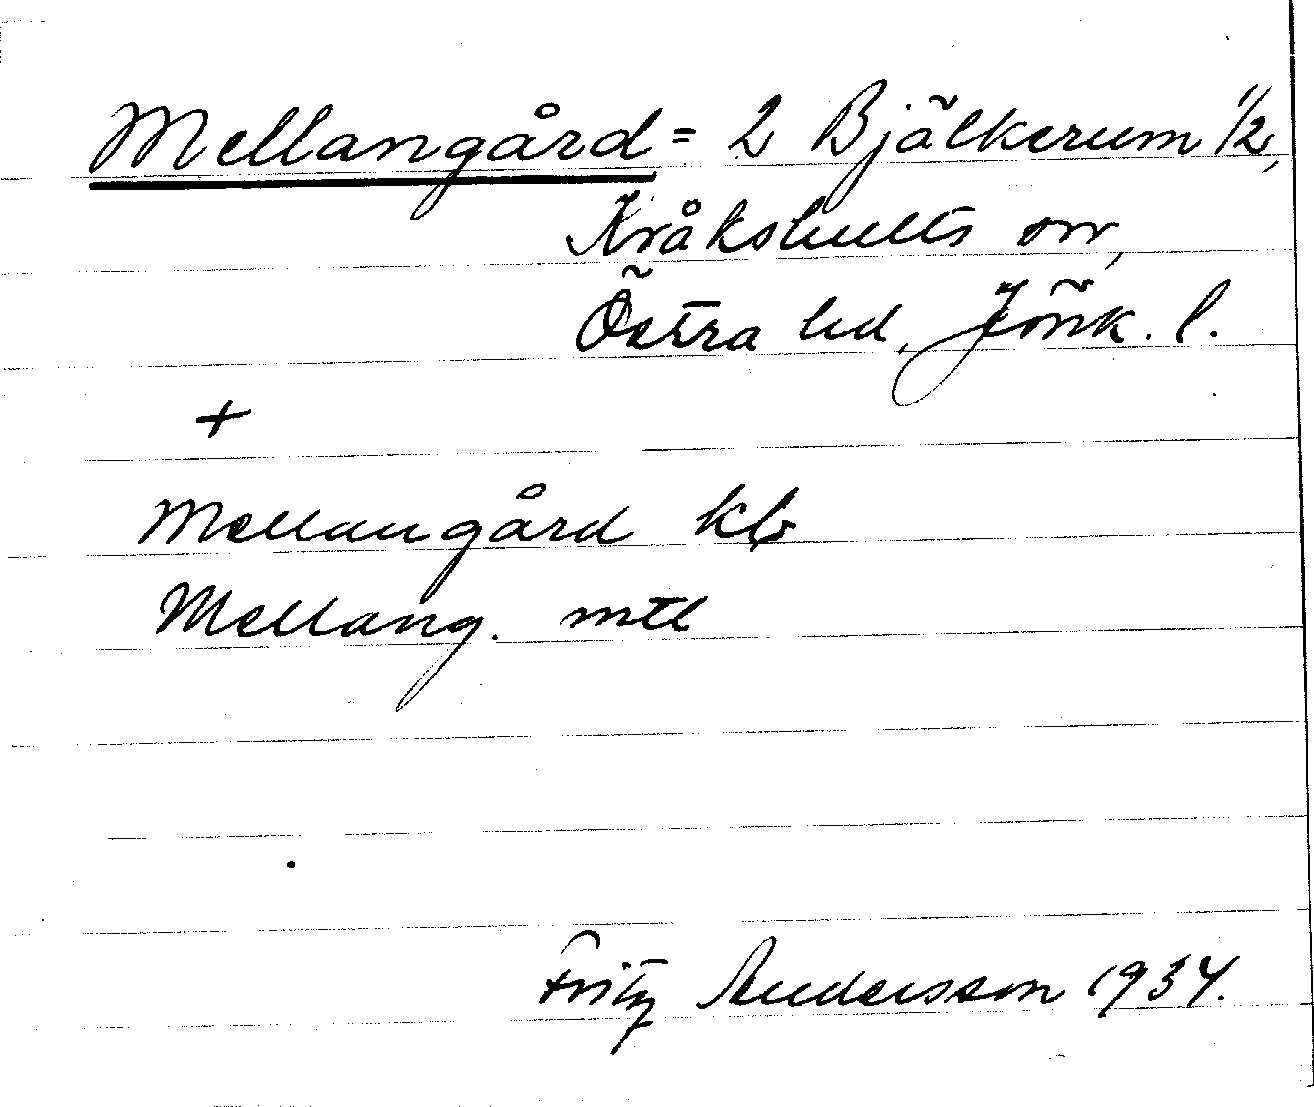 Mellangård = 2 Bjälkerum 1/2,
Kråkshults sn,
Östra hd, Jönk. l.
+
Mellangård kb
Mellang. mtl
Fritz Andersson 1934.